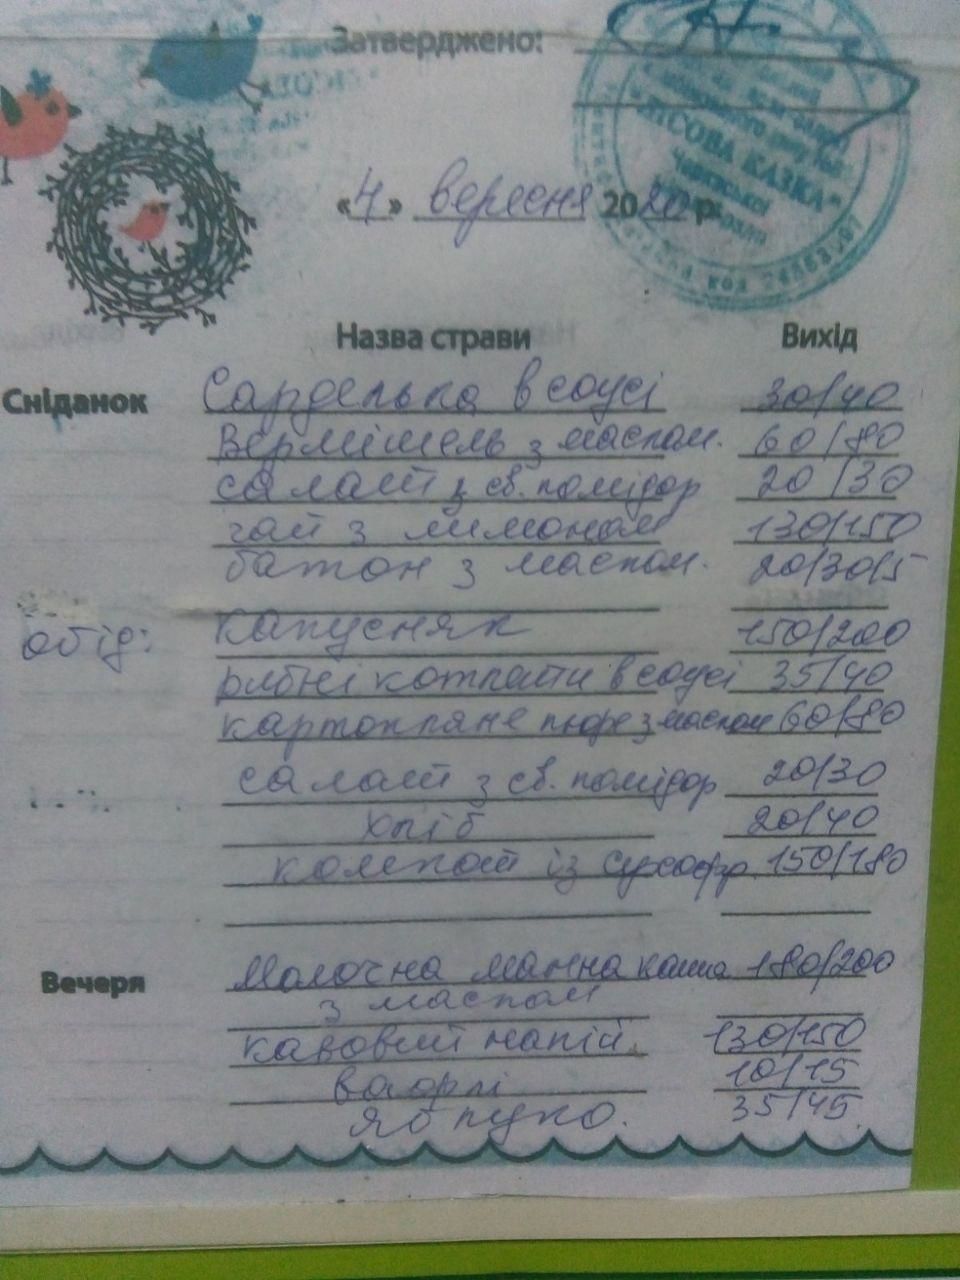 Затверджено:
"ЛІСОВА КАЗКА"
«4» вересня 2020 р.
Назва страви Вихід
Сніданок Сарделька в соусі 30/40
Вермішель з маслом. 60/80
салат з св. помідор 20/30
чай з лимоном 130/150
батон з маслом. 20/30/5
обід: капусняк 150/200
рибні котлети в соусі 35/40
картопляне пюре з маслом 60/80
салат з св. помідор 20/30
хліб 20/40
компот із сухофр. 150/180
Вечеря Молочна манна каша 180/200
з маслом
кавовий напій. 130/150
вафлі 10/15
яблуко. 35/45